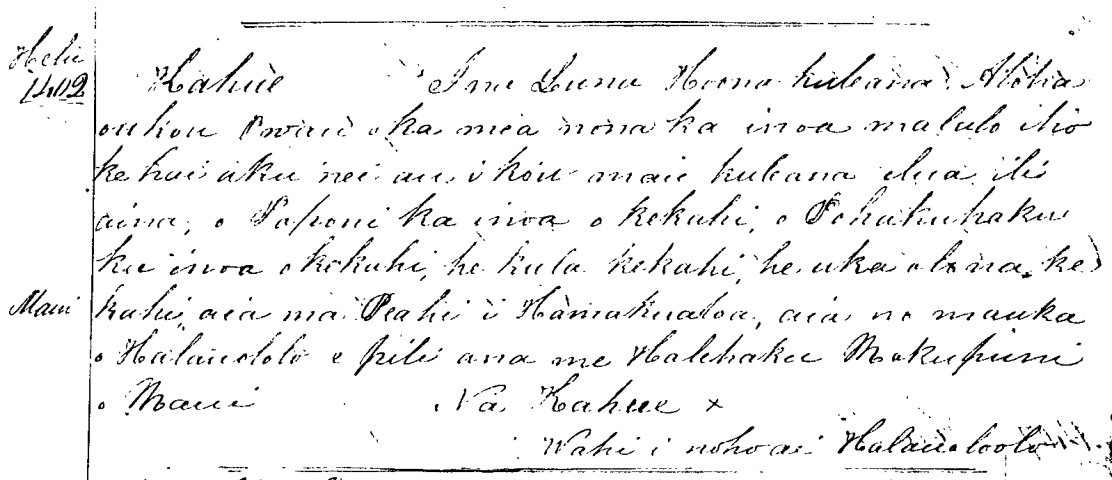 Helu
1402
Kahue Ina Luna Hoona kuleana. Aloha
oukou Owau o ka mea nona ka inoa malalo iho
ke hai aku nei au i kou mau kuleana elua ili
aina, o Paponi ka inoa o kekahi, o Pohakuhaku
ka inoa o kekahi, he kula kekahi, he uka olona ke
Maui
kahi, aia ma Peahi i Hamakualoa, aia no mauka
o Halaulolo e pili ana me Halehaku Mokupuni
o Maui Na Kahue x
Wahi i noho ai Halauoloolo